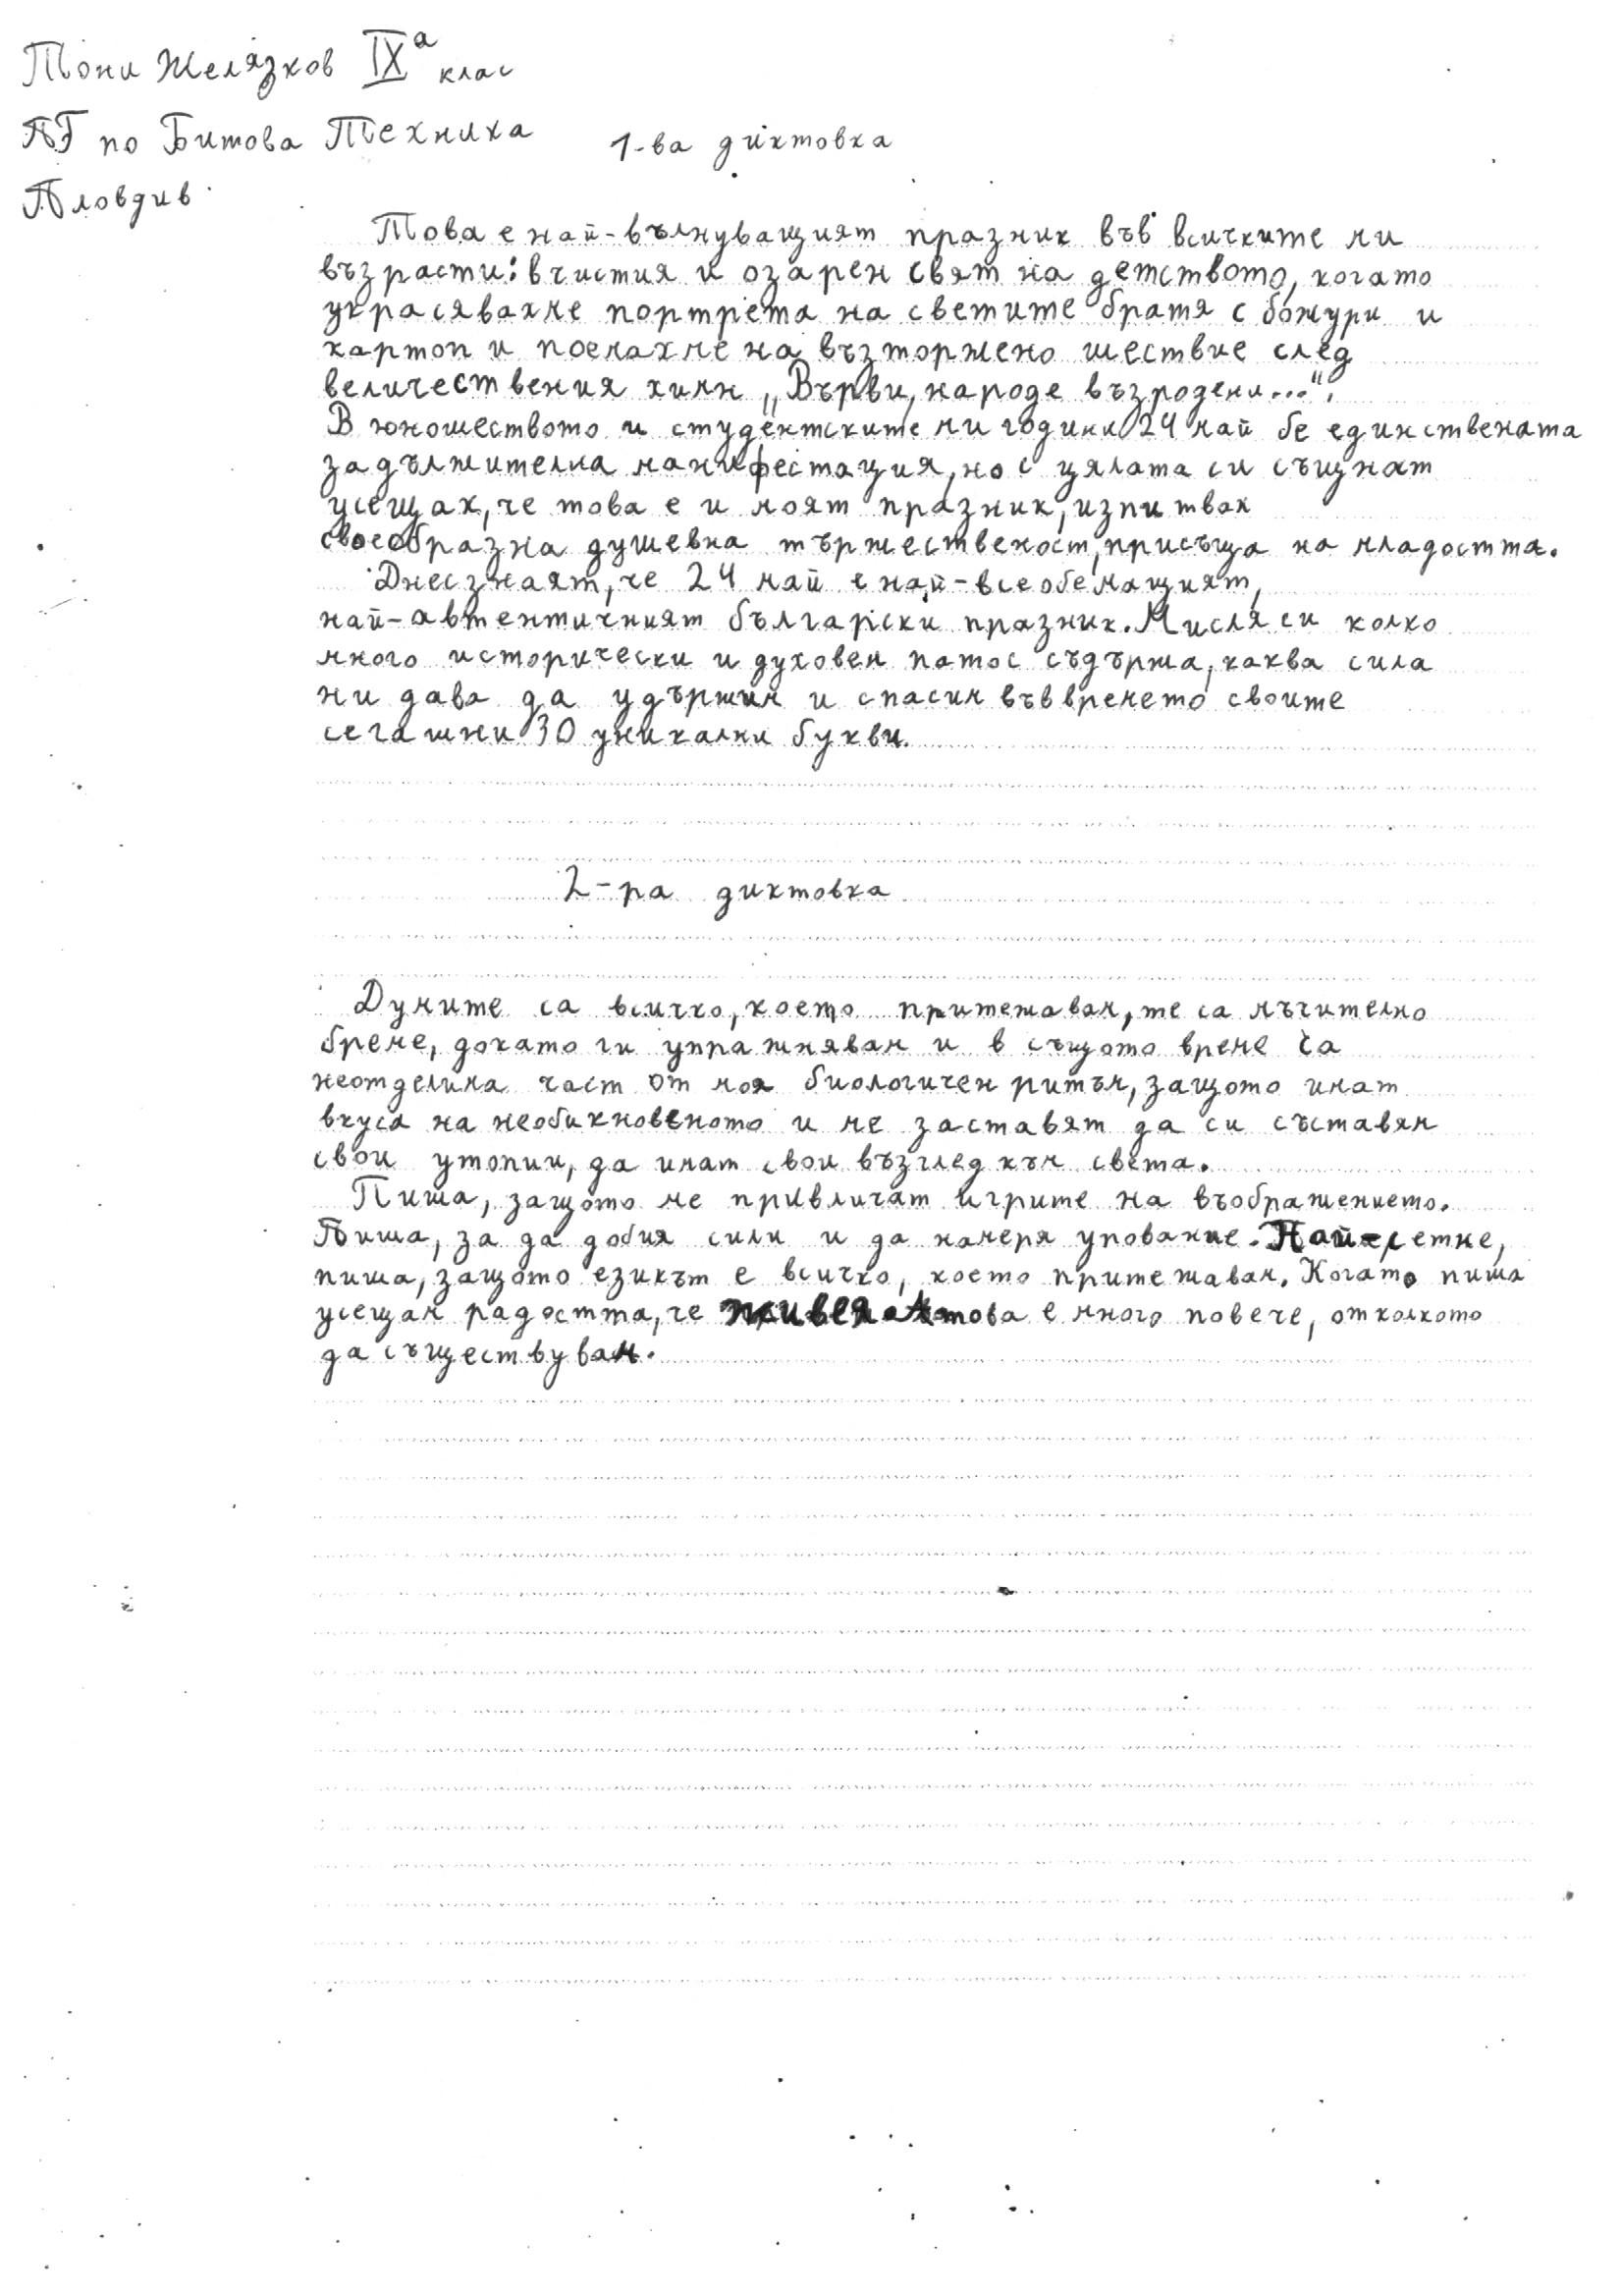 Тони Желязков IXа клас
ПГ по Битова Техника
1-ва диктовка
Пловдив
Това е най-вълнуващият празник във всичките ми
възрасти: в чистия и озарен свят на детството, когато
украсявахме портрета на светите братя с божури и
картоп и поемахме на възторжено шествие след
величествения химн „Върви, народе възродени...“.
В юношеството и студентските ми години 24 май бе единствената
задължителна манифестация, но с цялата си същнат
усещах, че това е и моят празник, изпитвах
своеобразна душевна тържественост, присъща на младостта.
Днес знаят, че 24 май е най-всеобемащият,
най-автентичният български празник. Мисля си колко
много исторически и духовен патос съдържа, каква сила
ни дава да удържим и спасим във времето своите
сегашни 30 уникални букви.
2-ра диктовка
Думите са всичко, което притежавам, те са мъчително
бреме, докато ги упражнявам и в същото време са
неотделима част от моя биологичен ритъм, защото имат
вкуса на необикновеното и ме заставят да си съставям
свои утопии, да имат свои възглед към света.
Пиша, защото ме привличат игрите на въображението.
Пиша, за да добия сили и да намеря упование. Най-сетне,
пиша, защото езикът е всичко, което притежавам. Когато пиша
усещам радостта, че живея. А това е много повече, отколкото
да съществувам.